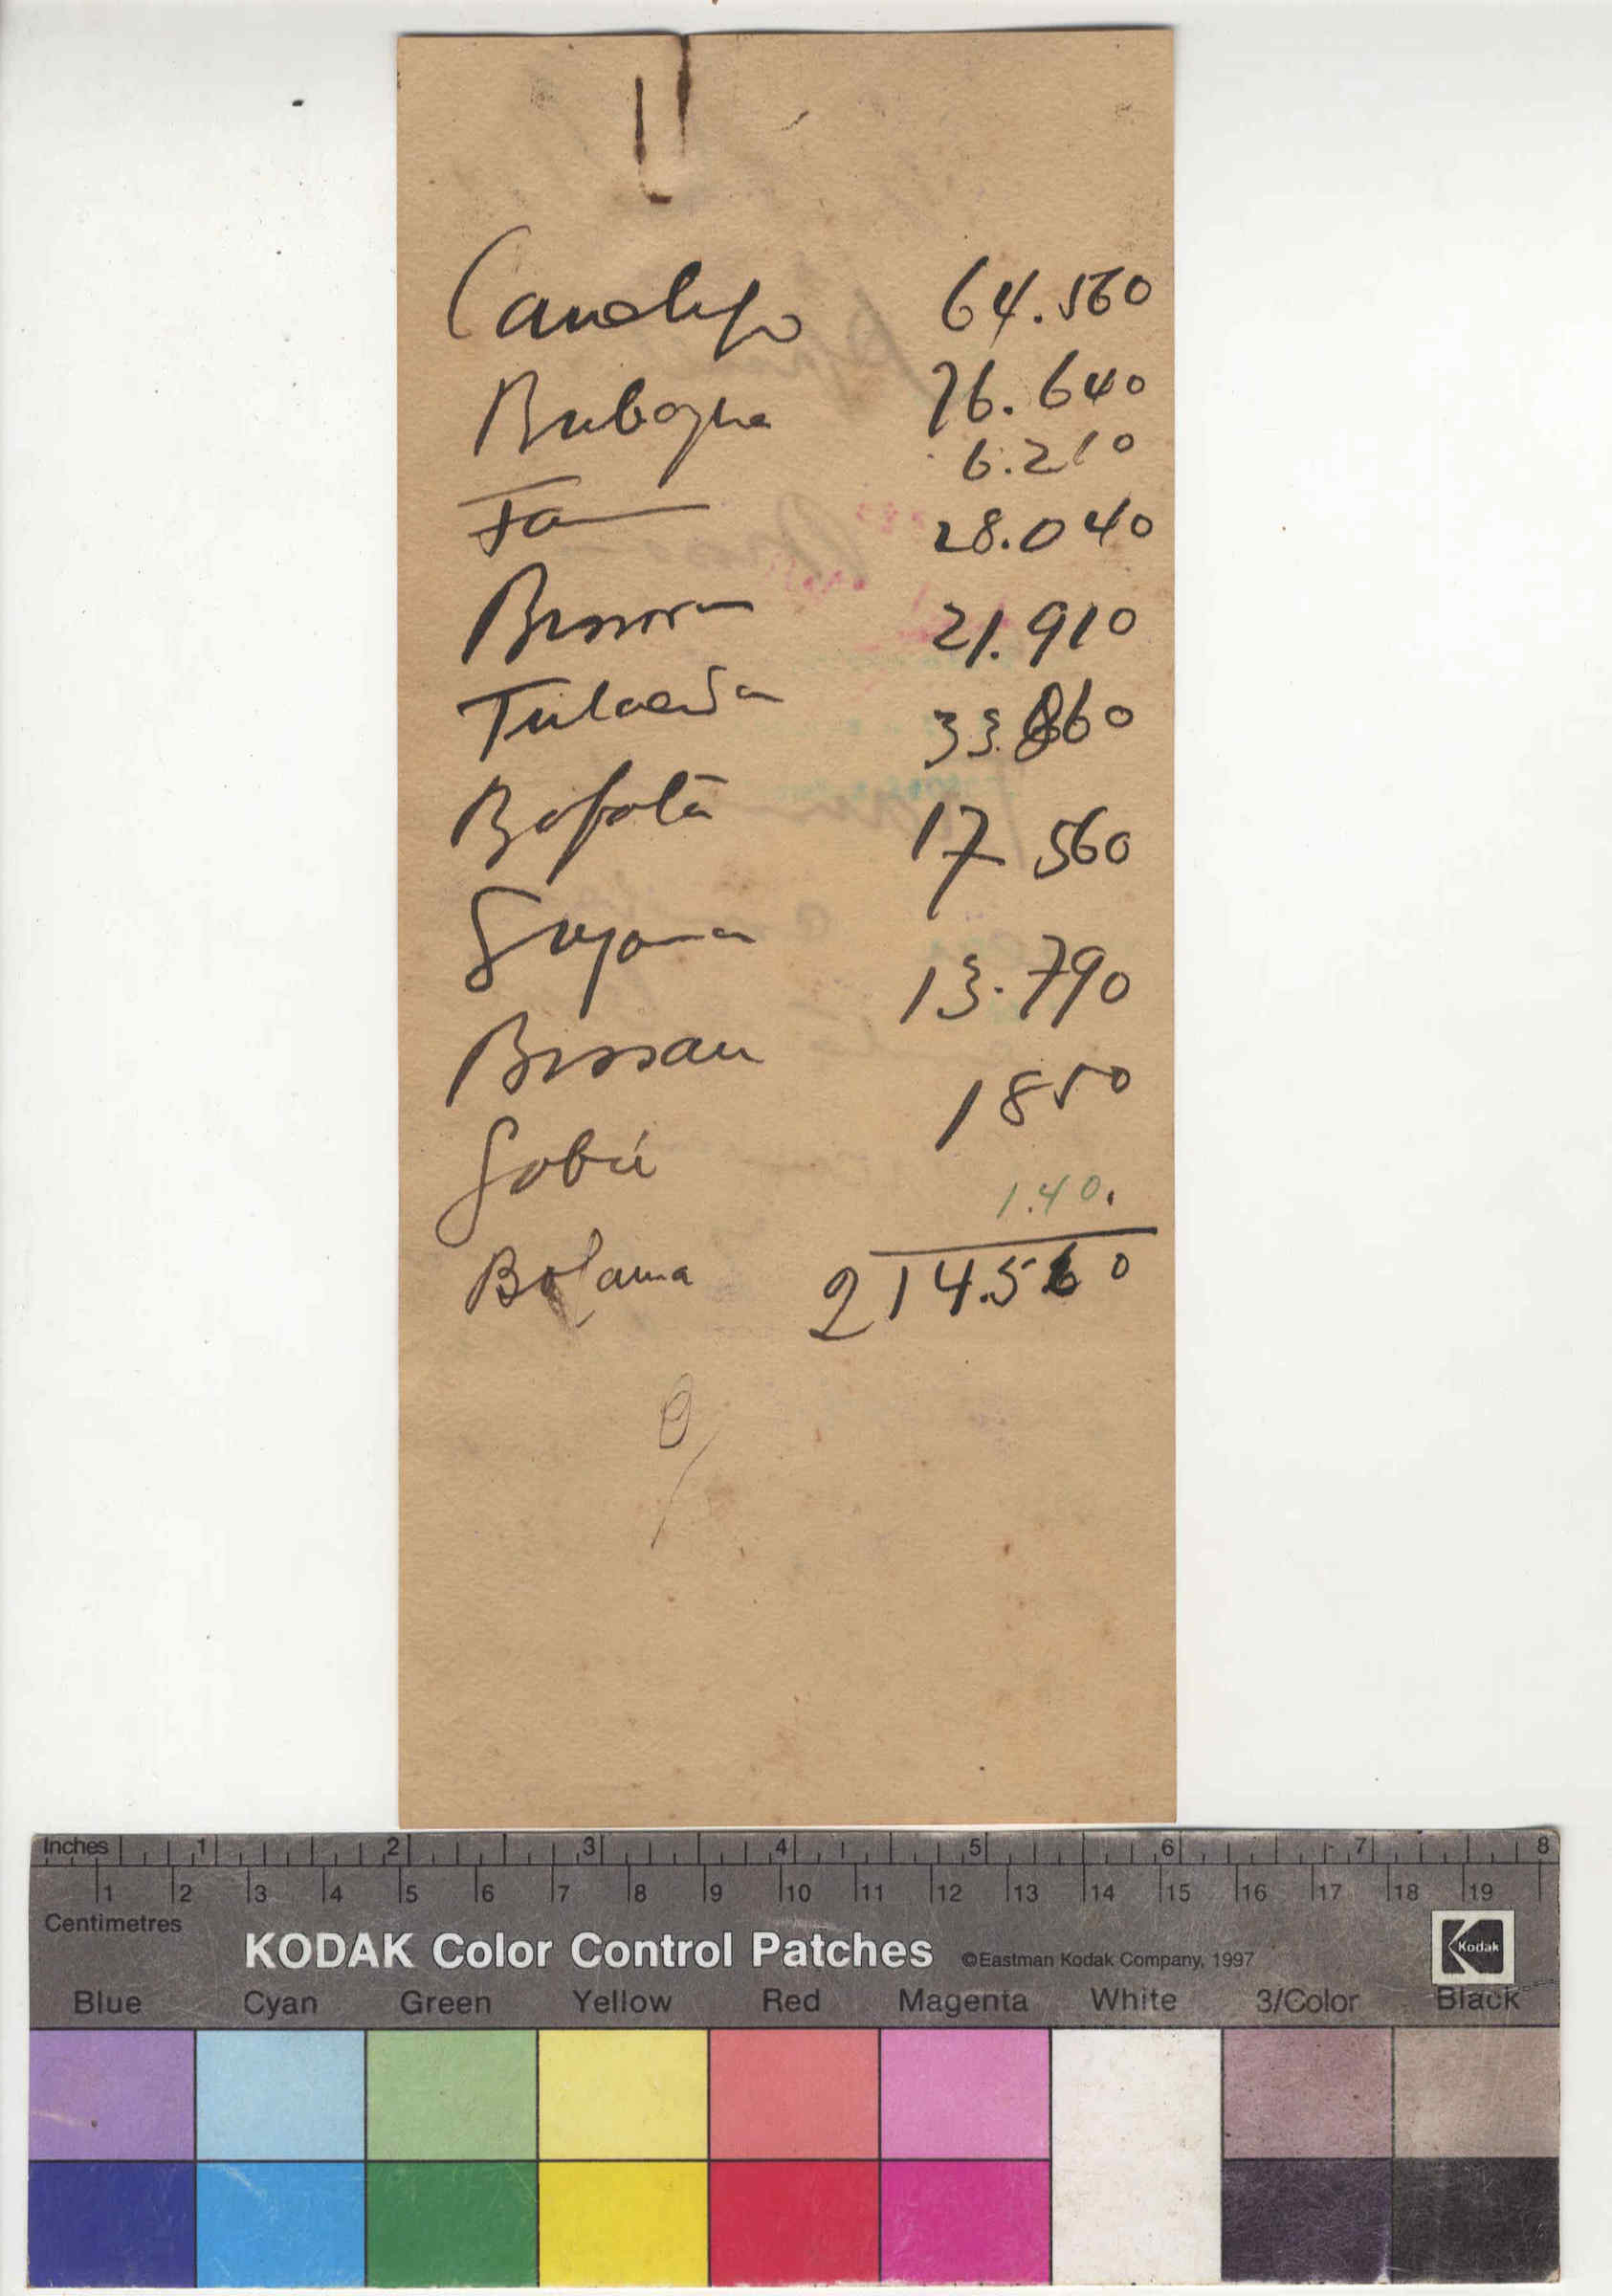 Canchungo 64.560
Bubaque 26.640
6.210
Fa 28.040
Bissorã 21.910
Fulacunda 33.860
Bafatá 17 560
Bissau 13.790
Gabú 1850
1.40.
Bolama 214.560
Inches 1 2 3 4 5 6 7 8
1 2 3 4 5 6 7 8 9 10 11 12 13 14 15 16 17 18 19
Centimetres
KODAK Color Control Patches ©Eastman Kodak Company, 1997 Kodak
Blue Cyan Green Yellow Red Magenta White 3/Color Black